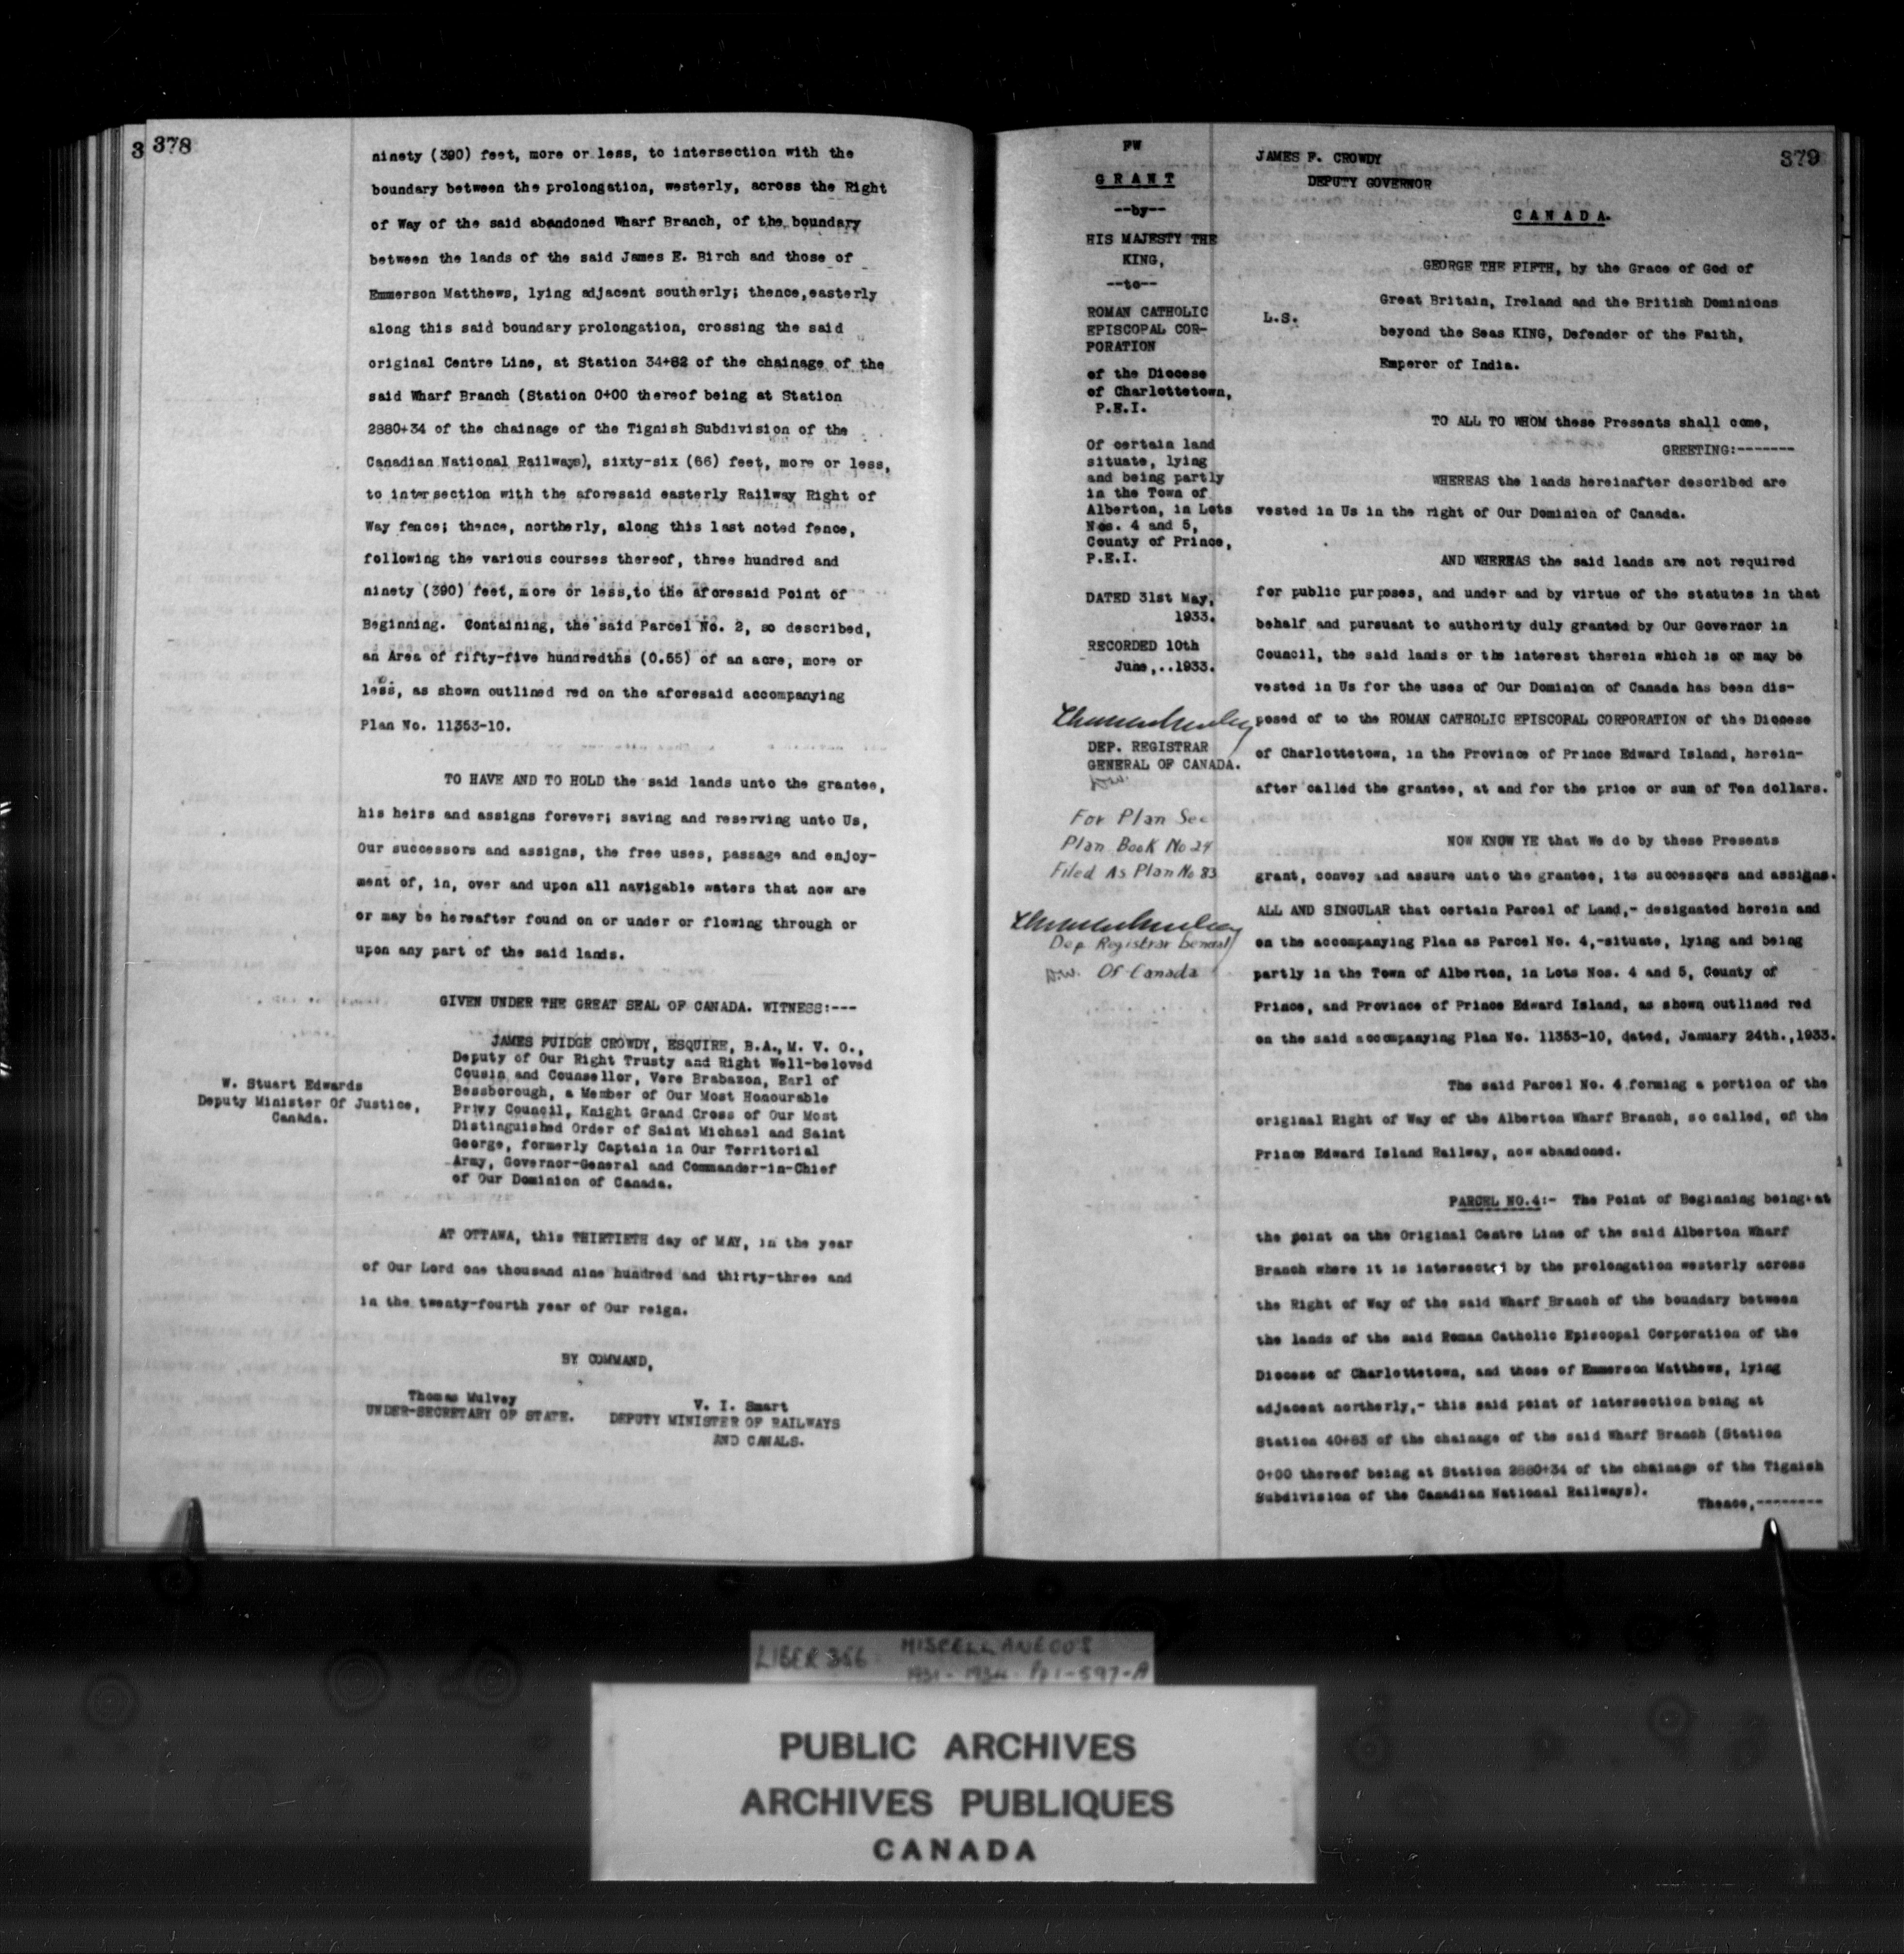 3 378
ninety (390) feet, more or less, to intersection with the
boundary between the prolongation, westerly, across the Right
of Way of the said abandoned Wharf Branch, of the boundary
between the lands of the said James E. Birch and those of
Emmerson Matthews, lying adjacent southerly; thence,easterly
along this said boundary prolongation, crossing the said
original Centre Line, at Station 34+82 of the chainage of the
said Wharf Branch (Station 0+00 thereof being at Station
2880+34 of the chainage of the Tignish Subdivision of the
Canadian National Railways), sixty-six (66) feet, more or less,
to intersection with the aforesaid easterly Railway Right of
Way fence; thence, northerly, along this last noted fence,
following the various courses thereof, three hundred and
ninety (390) feet, more or less,to the aforesaid Point of
Beginning. Containing, the said Parcel No. 2, so described,
an Area of fifty-five hundredths (0.55) of an acre, more or
less, as shown outlined red on the aforesaid accompanying
Plan No. 11353-10.
TO HAVE AND TO HOLD the said lands unto the grantee,
his heirs and assigns forever; saving and reserving unto Us,
Our successors and assigns, the free uses, passage and enjoy-
ment of, in, over and upon all navigable waters that now are
or may be hereafter found on or under or flowing through or
upon any part of the said lands.
GIVEN UNDER THE GREAT SEAL OF CANADA. WITNESS:---
JAMES FUIDGE CROWDY, ESQUIRE, B.A., M. V. O.,
Deputy of Our Right Trusty and Right Well-beloved
Cousin and Counsellor, Vere Brabazon, Earl of
Bessborough, a Member of Our Most Honourable
Privy Council, Knight Grand Cross of Our Most
Distinguished Order of Saint Michael and Saint
George, formerly Captain in Our Territorial
Army, Governor-General and Commander-in-Chief
of Our Dominion of Canada.
W. Stuart Edwards
Deputy Minister Of Justice,
Canada.
AT OTTAWA, this THIRTIETH day of MAY, in the year
of Our Lord one thousand nine hundred and thirty-three and
in the twenty-fourth year of Our reign.
BY COMMAND,
Thomas Mulvey
UNDER-SECRETARY OF STATE.
V. I. Smart
DEPUTY MINISTER OF RAILWAYS
AND CANALS.
379
PW
GRANT
--by--
HIS MAJESTY THE
KING,
--to--
ROMAN CATHOLIC
EPISCOPAL COR-
PORATION
of the Diocese
of Charlottetown,
P.E.I.
Of certain land
situate, lying
and being partly
in the Town of
Alberton, in Lots
Nos. 4 and 5,
County of Prince,
P.E.I.
DATED 31st May,
1933.
RECORDED 10th
June,..1933.
DEP. REGISTRAR
GENERAL OF CANADA.
For Plan See
Plan Book No 24
Filed As Plan No 83
Dep Registrar General
Of Canada
JAMES F. CROWDY
DEPUTY GOVERNOR
CANADA.
GEORGE THE FIFTH, by the Grace of God of
Great Britain, Ireland and the British Dominions
L.S.
beyond the Seas KING, Defender of the Faith,
Emperor of India.
TO ALL TO WHOM these Presents shall come,
GREETING:-------
WHEREAS the lands hereinafter described are
vested in Us in the right of Our Dominion of Canada.
AND WHEREAS the said lands are not required
for public purposes, and under and by virtue of the statutes in that
behalf and pursuant to authority duly granted by Our Governor in
Council, the said lands or the interest therein which is or may be
vested in Us for the uses of Our Dominion of Canada has been dis-
posed of to the ROMAN CATHOLIC EPISCOPAL CORPORATION of the Diocese
of Charlottetown, in the Province of Prince Edward Island, herein-
after called the grantee, at and for the price or sum of Ten dollars.
NOW KNOW YE that We do by these Presents
grant, convey and assure unto the grantee, its successors and assigns.
ALL AND SINGULAR that certain Parcel of Land,- designated herein and
on the accompanying Plan as Parcel No. 4,-situate, lying and being
partly in the Town of Alberton, in Lots Nos. 4 and 5, County of
Prince, and Province of Prince Edward Island, as shown outlined red
on the said accompanying Plan No. 11353-10, dated, January 24th.,1933.
The said Parcel No. 4 forming a portion of the
original Right of Way of the Alberton Wharf Branch, so called, of the
Prince Edward Island Railway, now abandoned.
PARCEL NO.4:- The Point of Beginning being at
the point on the Original Centre Line of the said Alberton Wharf
Branch where it is intersected by the prolongation westerly across
the Right of Way of the said Wharf Branch of the boundary between
the lands of the said Roman Catholic Episcopal Corporation of the
Diocese of Charlottetown, and those of Emmerson Matthews, lying
adjacent northerly,- this said point of intersection being at
Station 40+83 of the chainage of the said Wharf Branch (Station
0+00 thereof being at Station 2880+34 of the chainage of the Tignish
Subdivision of the Canadian National Railways).
Thence,--------
LIBER 356 MISCELLANEOUS
1931-1934 Pp 1-597-A
PUBLIC ARCHIVES
ARCHIVES PUBLIQUES
CANADA